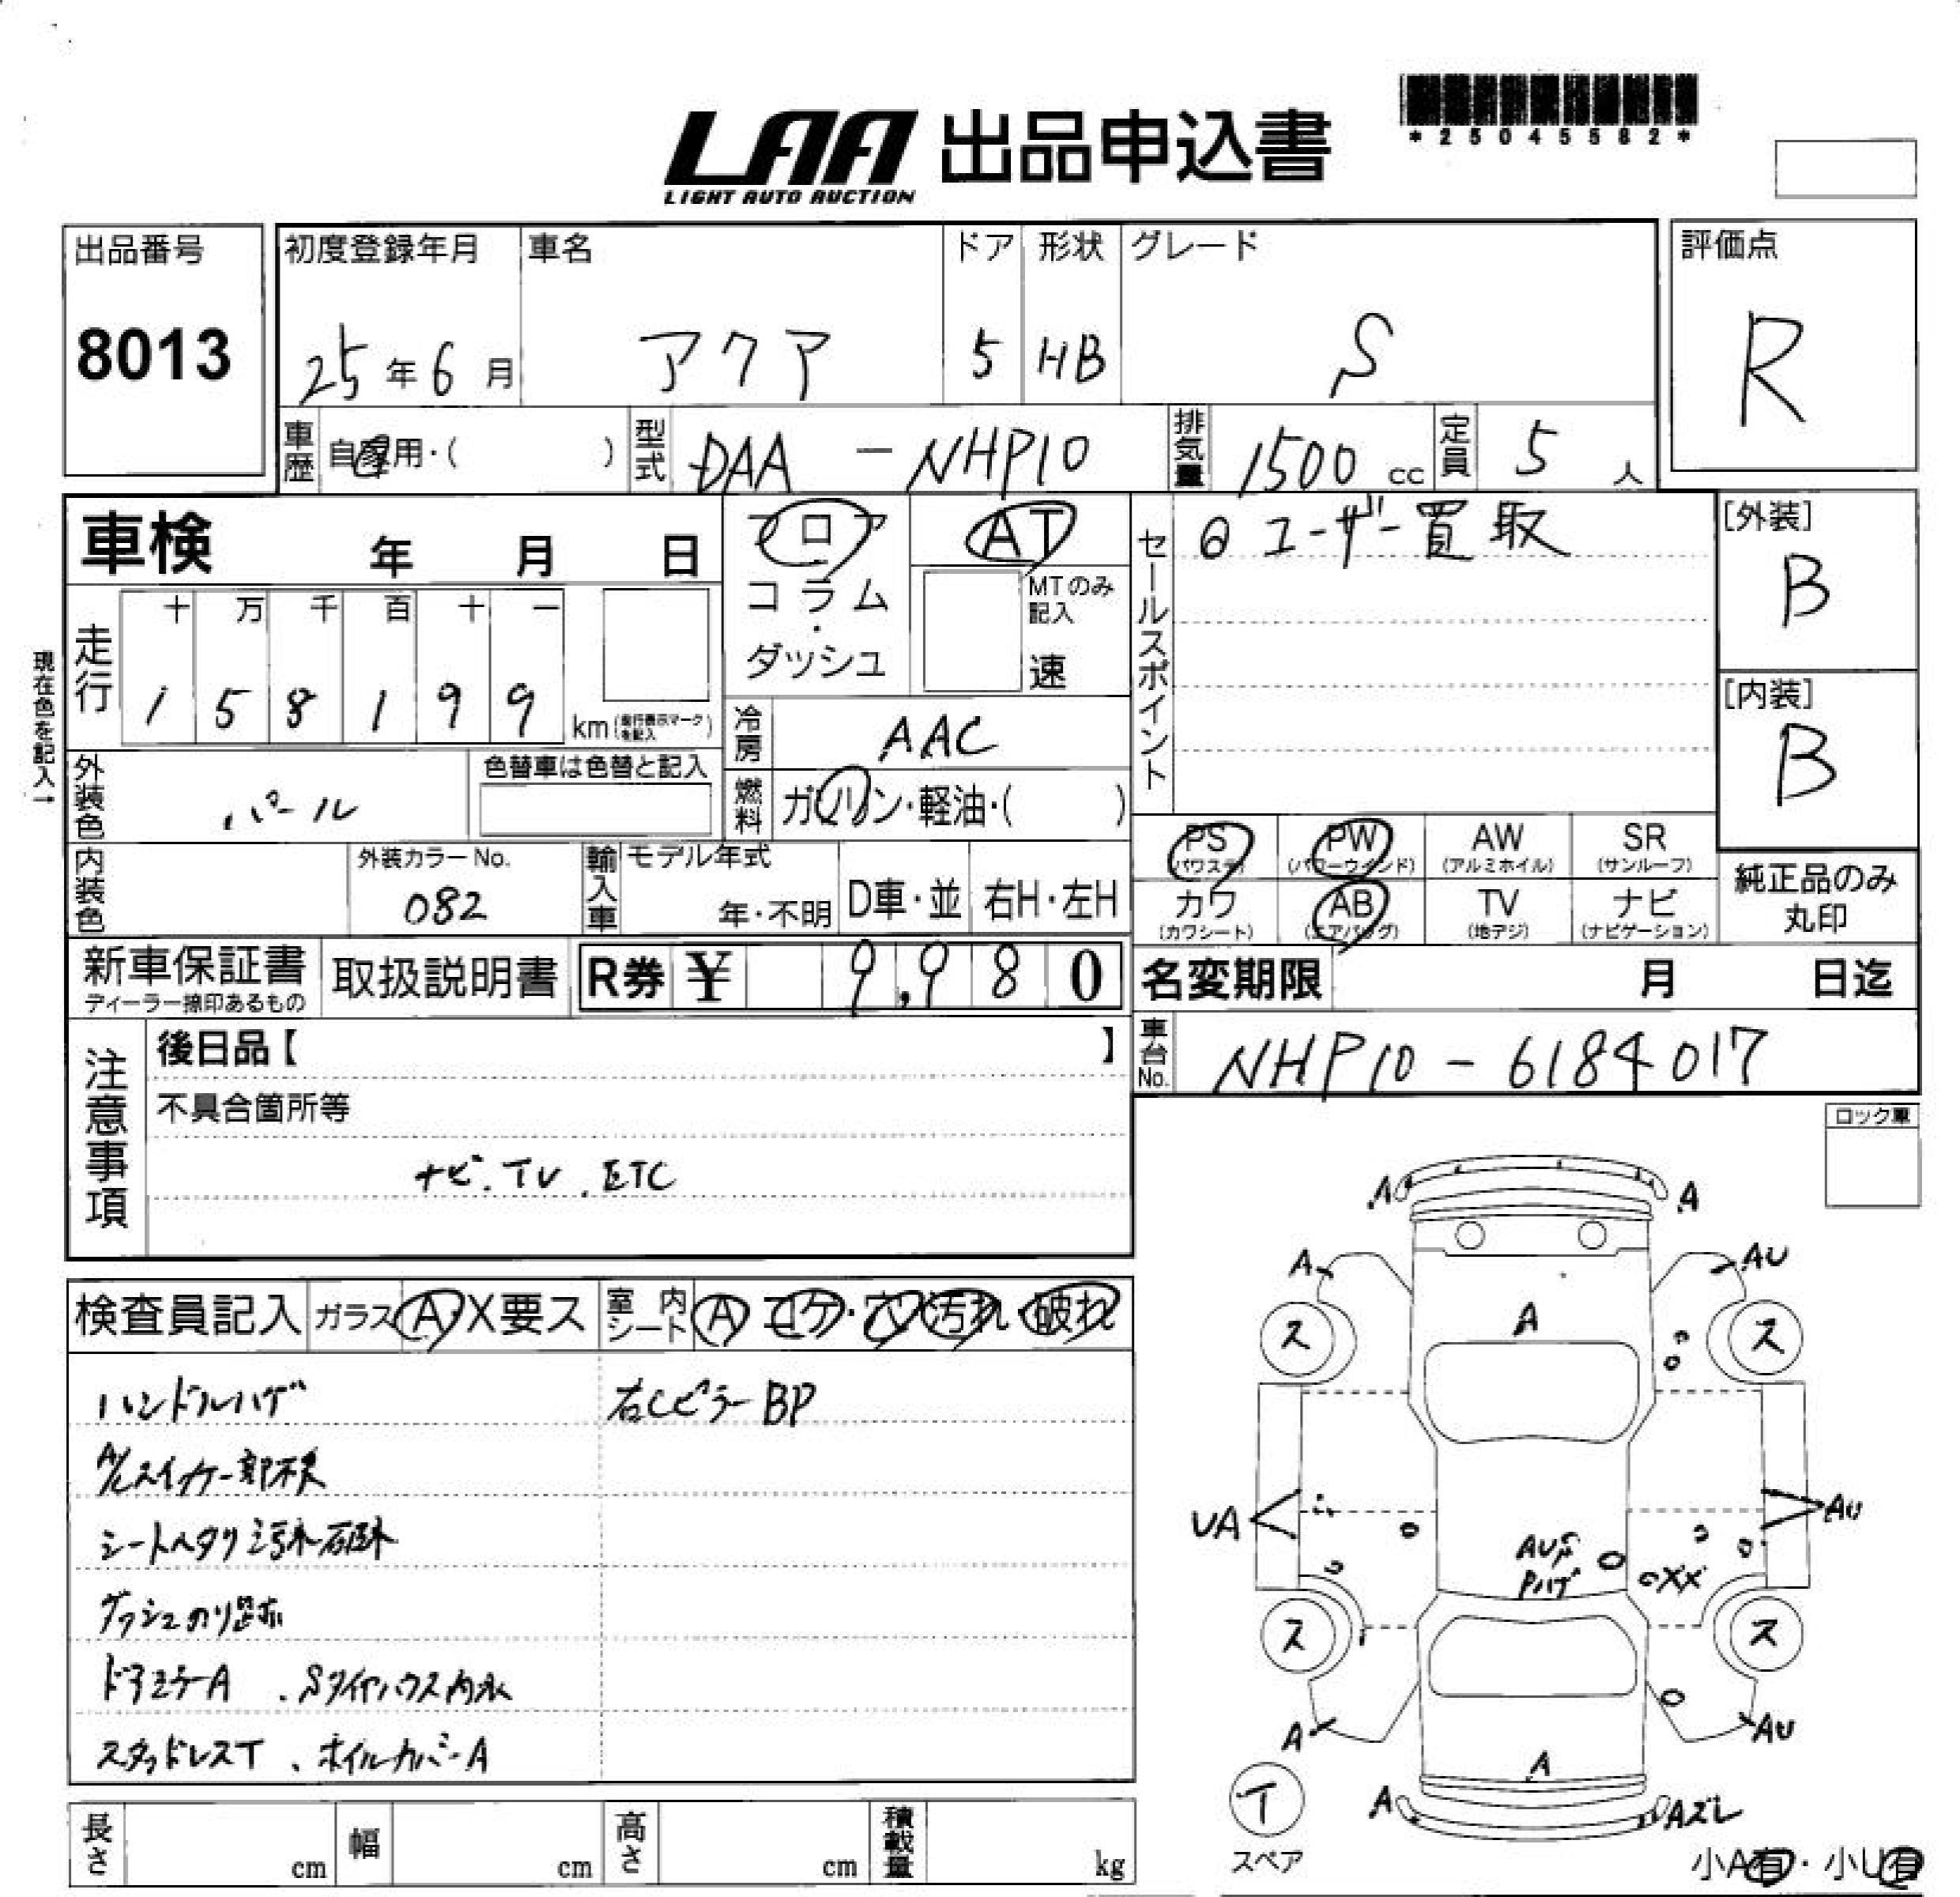 LAA 出品申込書
LIGHT AUTO AUCTION
*25045582*
出品番号
8013
初度登録年月
25年6月
車名
アクア
ドア
5
形状
HB
グレード
S
評価点
R
車歴
自家用・( )
型式
DAA - NHP10
排気量
1500 cc
定員
5 人
車検 年 月 日
フロア
コラム
・
ダッシュ
AT
MTのみ
記入
速
セールスポイント
◎ユーザー買取
[外装]
B
[内装]
B
現在色を記入→
走行
十 万 千 百 十 一
1 5 8 1 9 9
km (走行表示マークを記入)
冷房
AAC
燃料
ガソリン・軽油・( )
外装色
パール
色替車は色替と記入
内装色
外装カラーNo.
082
輸入車
モデル年式
年・不明
D車・並
右H・左H
PS
(パワステ)
PW
(パワーウインド)
AW
(アルミホイル)
SR
(サンルーフ)
カワ
(カワシート)
AB
(エアバッグ)
TV
(地デジ)
ナビ
(ナビゲーション)
純正品のみ
丸印
新車保証書
ディーラー捺印あるもの
取扱説明書
R券 ¥ 9,980
名変期限 月 日迄
車台No.
NHP10-6184017
注意事項
後日品【 】
不具合箇所等
ナビ.TV.ETC
ロック車
検査員記入
ガラス A・X要ス
室内シート A コゲ・穴・汚れ・破れ
ハンドルハゲ
右CピラーBP
A/Cスイッチ一部不良
シートヘタリ汚れ破れ
ダッシュのり跡
ドアミラーA 、Sタイヤハウス内
スタッドレスT 、ホイルカバーA
A A
A AU
ス A ス
UA AU
AU
Pハゲ
XX
ス ス
A AU
A
T
スペア
A Aズレ
小A有・小U有
長さ cm
幅 cm
高さ cm
積載量 kg